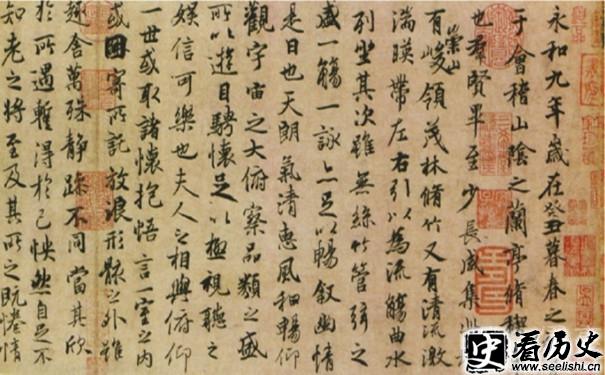 永和九年歲在癸丑暮春之
于會稽山陰之蘭亭脩禊
也羣賢畢至少長咸集此
有崇山峻領茂林脩竹又有清流激
湍暎帶左右引以為流觴曲水
列坐其次雖無絲竹管弦之
盛一觴一詠亦足以暢敘幽情
是日也天朗氣清惠風和暢仰
觀宇宙之大俯察品類之盛
所以遊目騁懷足以極視聽之
娛信可樂也夫人之相與俯仰
一世或取諸懷抱悟言一室之內
或因寄所託放浪形骸之外雖
趣舍萬殊靜躁不同當其欣
於所遇暫得於己怏然自足不
知老之將至及其所之既惓情
史 看历史
www.seelishi.cn